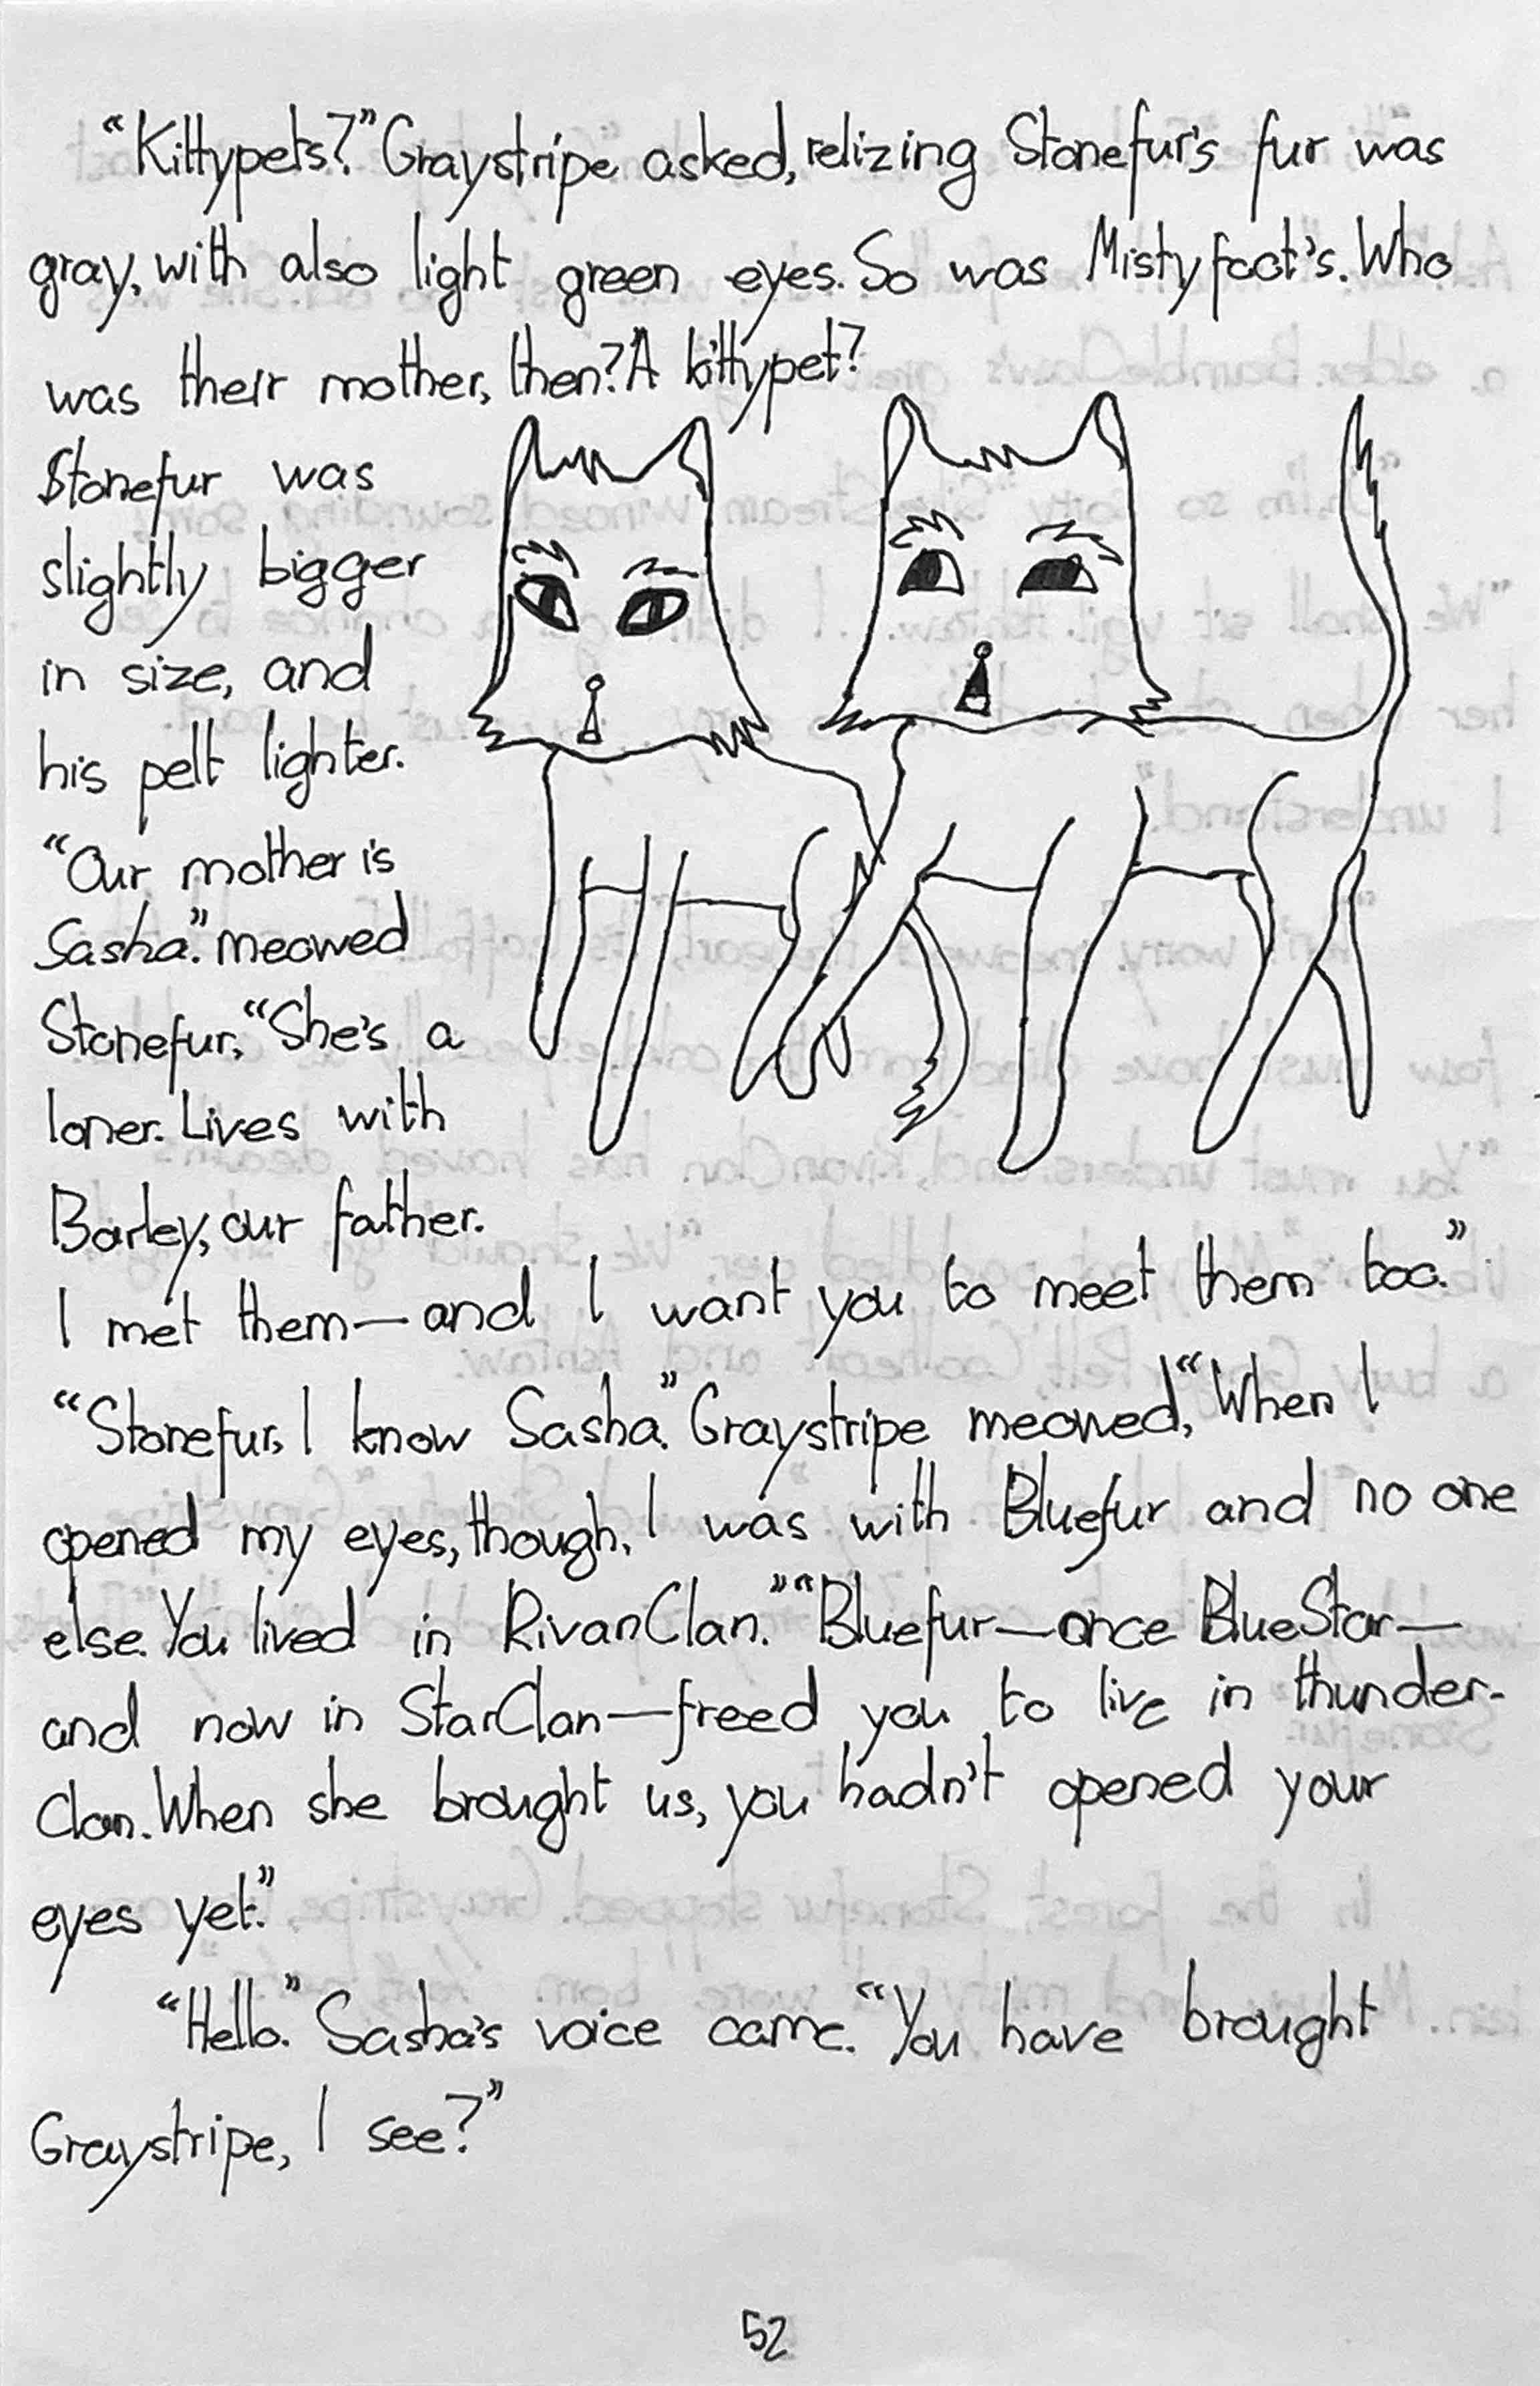 “Kittypets?” Graystripe asked, relizing Stonefur's fur was
gray, with also light green eyes. So was Mistyfoot's. Who
was their mother, then? A kittypet?
Stonefur was
slightly bigger
in size, and
his pelt lighter.
“Our mother is
Sasha.” meowed
Stonefur, “She's a
loner. Lives with
Barley, our father.
I met them—and I want you to meet them too.”
“Stonefur, I know Sasha.” Graystripe meowed, “When I
opened my eyes, though, I was with Bluefur and no one
else. You lived in RivanClan.” “Bluefur—once BlueStar—
and now in StarClan—freed you to live in thunder-
Clan. When she brought us, you hadn't opened your
eyes yet.”
“Hello.” Sasha's voice came. “You have brought
Graystripe, I see?”
52